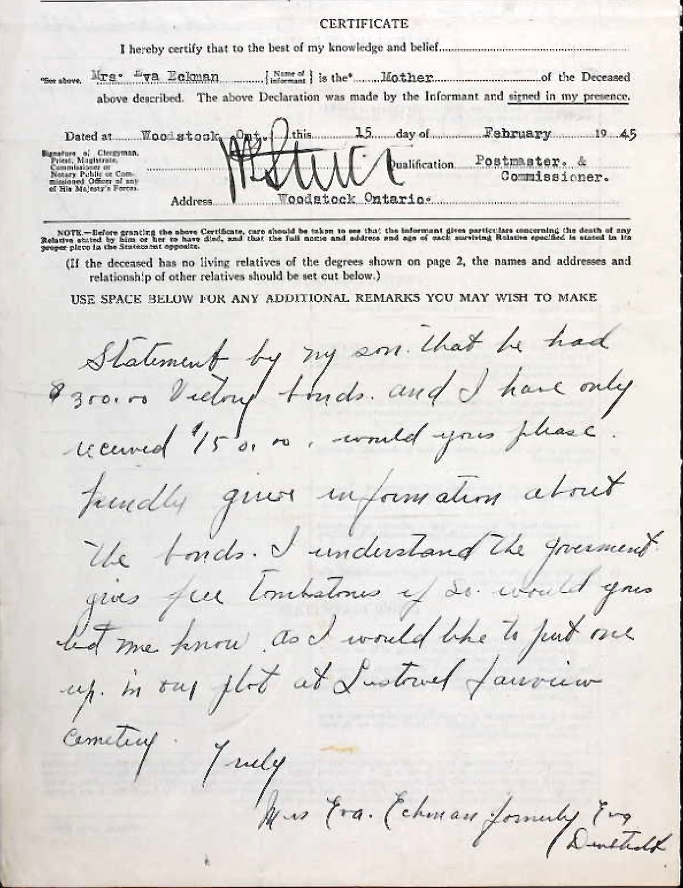 CERTIFICATE
I hereby certify that to the best of my knowledge and belief
*See above. Mrs. Eva Eckman {Name of Informant} is the* Mother of the Deceased
above described. The above Declaration was made by the Informant and signed in my presence.
Dated at Woodstock, Ont. this 15 day of February 1945
Signature of Clergyman, Priest, Magistrate, Commissioner or Notary Public or Commissioned Officer of any of His Majesty's Forces.
Qualification Postmaster. & Commissioner.
Address Woodstock Ontario.
NOTE.—Before granting the above Certificate, care should be taken to see that the informant gives particulars concerning the death of any
Relative stated by him or her to have died, and that the full name and address and age of each surviving Relative specified is stated in its
proper place in the Statement opposite.
(If the deceased has no living relatives of the degrees shown on page 2, the names and addresses and
relationship of other relatives should be set out below.)
USE SPACE BELOW FOR ANY ADDITIONAL REMARKS YOU MAY WISH TO MAKE
Statement by my son. that he had
$300.00 Victory bonds. and I have only
received $150.00, would you please.
kindly give information about
the bonds. I understand the goverment
gives free Tombstones if so. would you
let me know as I would like to put one
up. in our plot at Listowel Fairview
Cemetery. Truly
Mrs Eva. Eckman formerly Eva